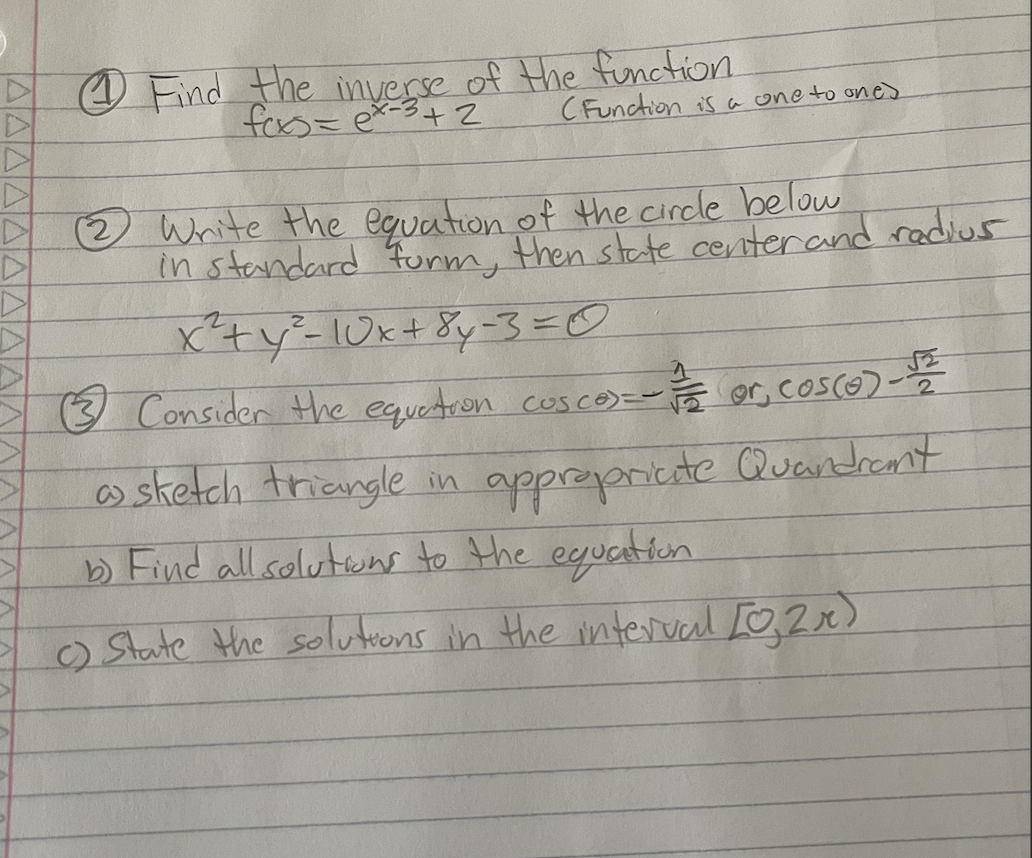 ① Find the inverse of the function
f(x) = e^{x-3} + 2 (Function is a one to one)
② Write the equation of the circle below
in standard form, then state center and radius
x² + y² - 10x + 8y - 3 = 0
③ Consider the equation cos(θ) = -1/√2 or, cos(θ) -√2/2
a) sketch triangle in appropricate Quandrant
b) Find all solutions to the equation
c) State the solutions in the interval [0, 2π)